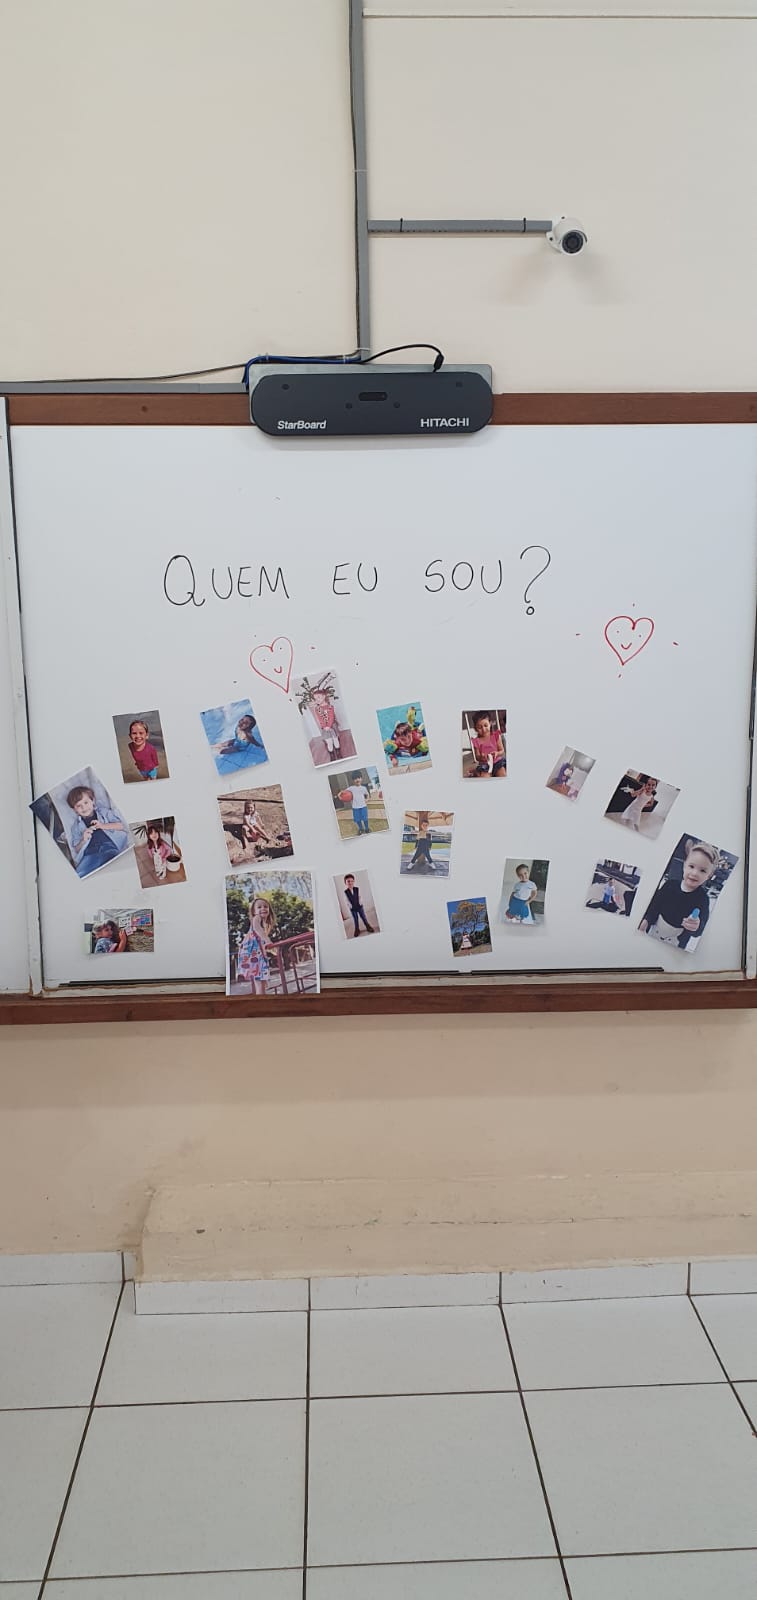 StarBoard HITACHI
QUEM EU SOU?